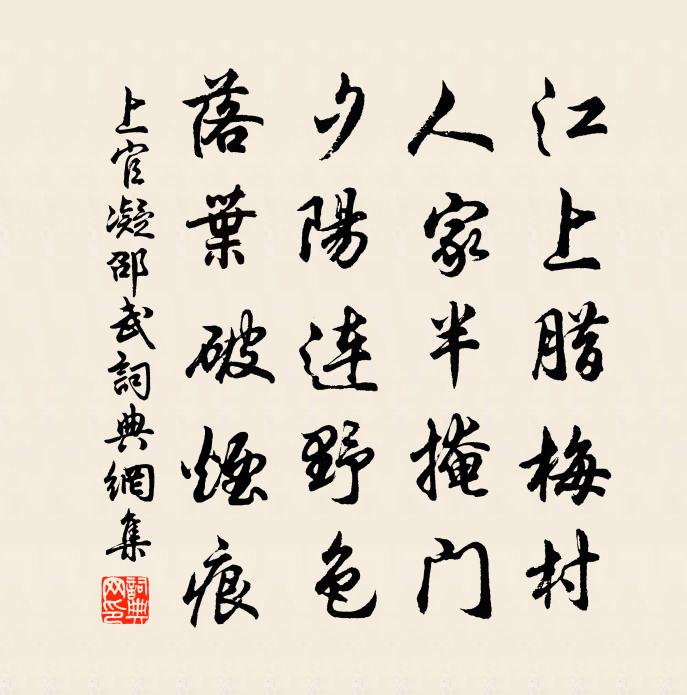 江上腊梅村
人家半掩门
夕陽連野色
落葉破煙痕
上官凝邵武詞典網集
詞典網印